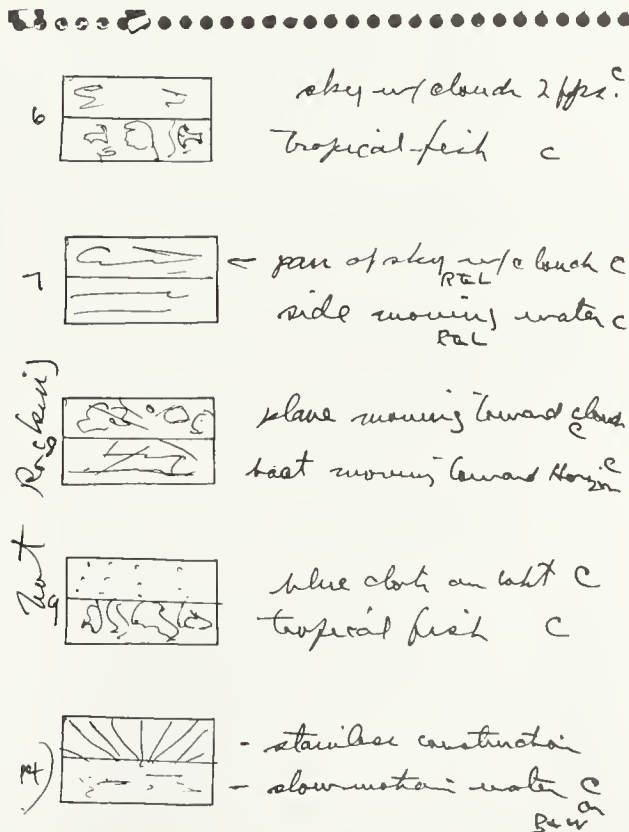 6
sky w/ clouds 2 fps. C
tropical fish C
7
← pan of sky w/clouds C
R to L
side moving water C
R to L
Rocking
plane moving toward clouds
C
boat moving toward Horizon C
not
9
blue dots on wht C
tropical fish C
14)
- stainless construction
- slow-motion water C
or
B+W